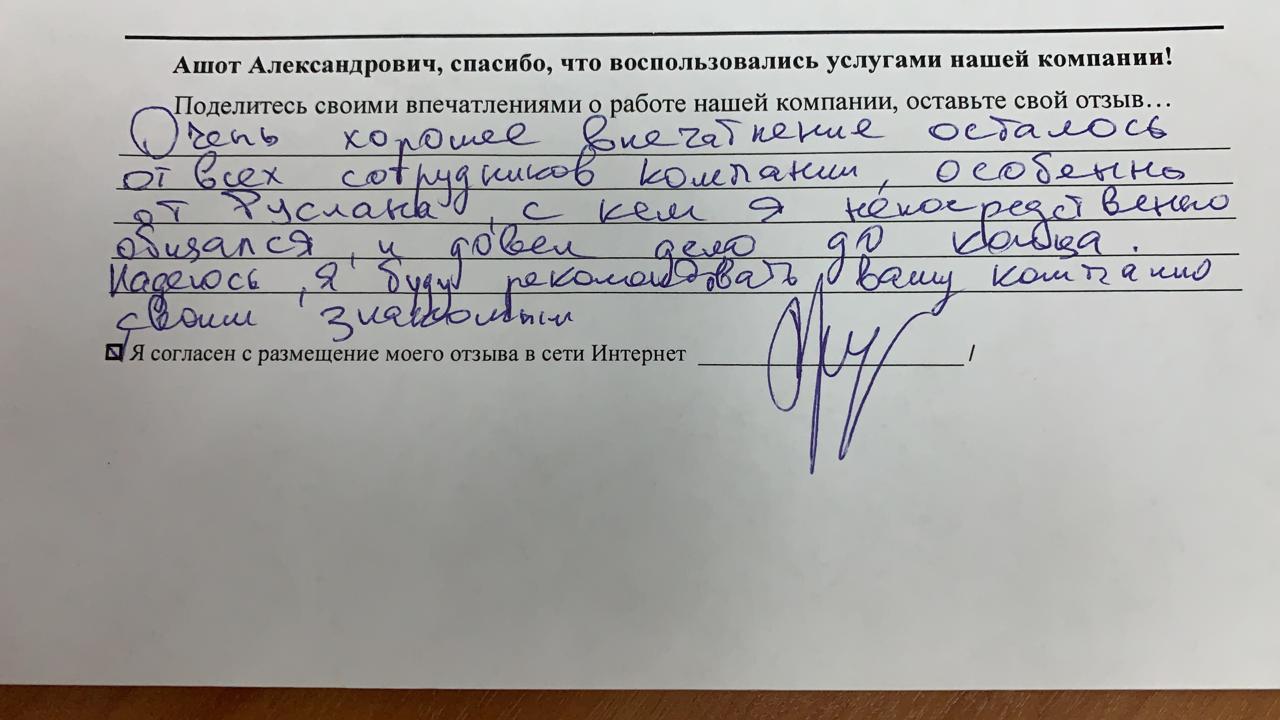 Ашот Александрович, спасибо, что воспользовались услугами нашей компании!
Поделитесь своими впечатлениями о работе нашей компании, оставьте свой отзыв…
Очень хорошее впечатление осталось
от всех сотрудников компании, особенно
от Руслана, с кем я непосредственно
общался, и довел дело до конца.
Надеюсь, я буду рекомендовать вашу компанию
своим знакомым
Я согласен с размещение моего отзыва в сети Интернет /